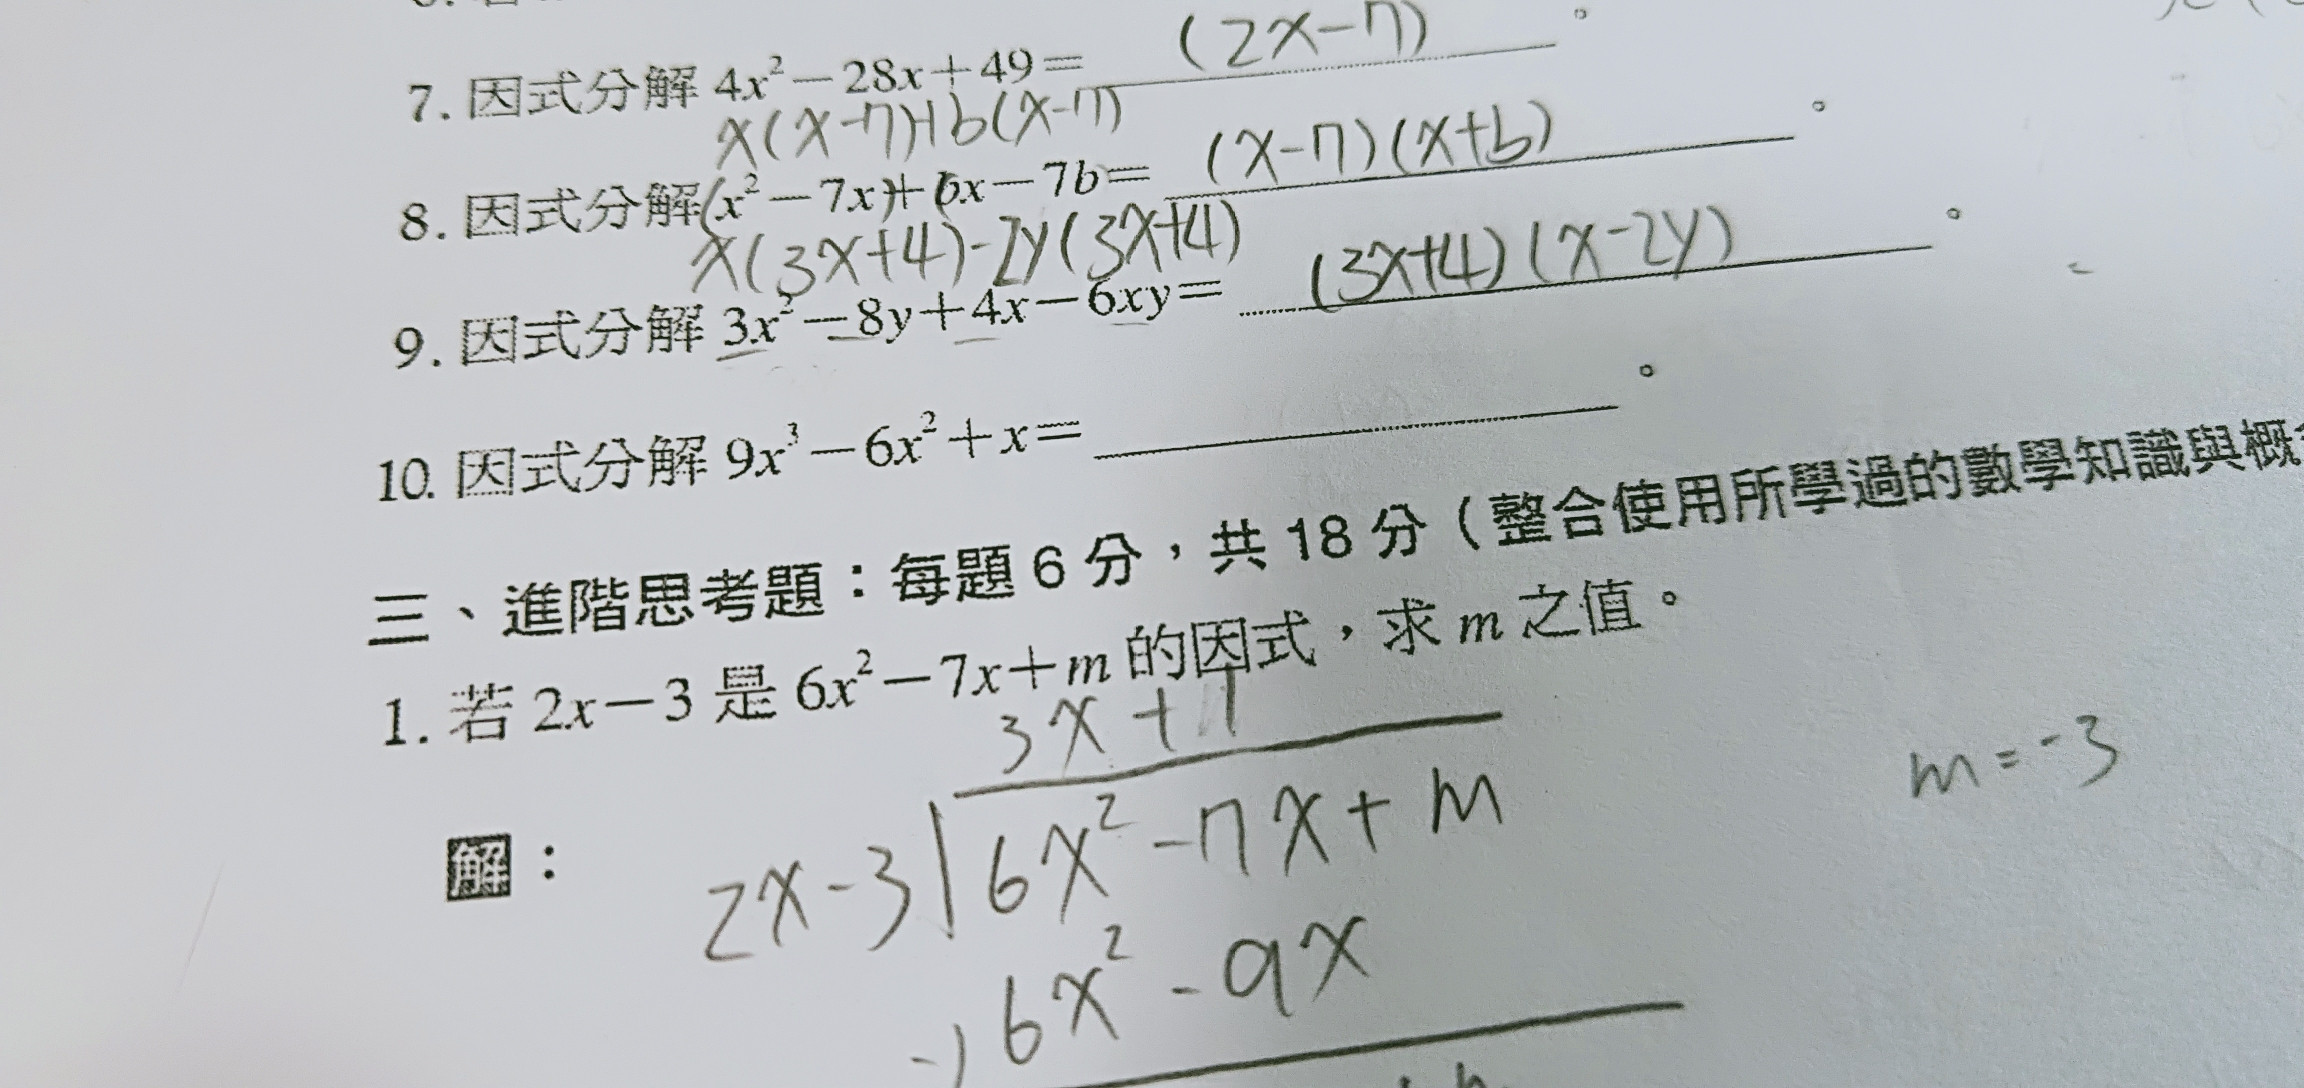 7. 因式分解 4x²－28x＋49＝ (2x-7) 。
x(x-7)+b(x-7)
8. 因式分解(x²－7x)＋bx－7b＝ (x-7)(x+b) 。
x(3x+4)-2y(3x+4)
9. 因式分解 3x²－8y＋4x－6xy＝ (3x+4)(x-2y) 。
10. 因式分解 9x³－6x²＋x＝ 。
三、進階思考題：每題 6 分，共 18 分（整合使用所學過的數學知識與概
1. 若 2x－3 是 6x²－7x＋m 的因式，求 m 之值。
3x+1
m=-3
解：
2x-3 6x²-7x+m
-) 6x²-9x